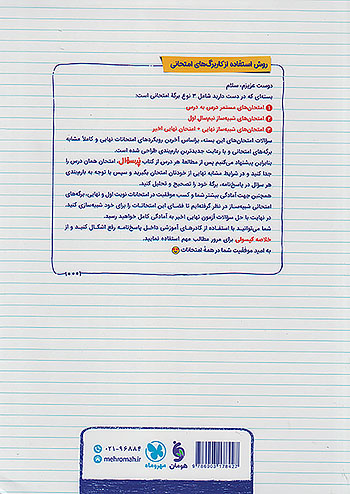 روش استفاده از کاربرگ‌های امتحانی
دوست عزیزم، سلام
بسته‌ای که در دست دارید شامل ۳ نوع برگهٔ امتحانی است:
۱ امتحان‌های مستمر درس به درس
۲ امتحان‌های شبیه‌ساز نیم‌سال اول
۳ امتحان‌های شبیه‌ساز نهایی + امتحان نهایی اخیر
سؤالات امتحان‌های این بسته، براساس آخرین رویکردهای امتحانات نهایی و کاملاً مشابه
برگه‌های امتحانی و با رعایت جدیدترین بارم‌بندی طراحی شده است.
بنابراین پیشنهاد می‌کنیم پس از مطالعهٔ هر درس از کتاب پُرسؤال، امتحان همان درس را
جدا کنید و در شرایط مشابه نهایی از خودتان امتحان بگیرید و سپس با توجه به بارم‌بندی
هر سؤال در پاسخ‌نامه، برگهٔ خود را تصحیح و تحلیل کنید.
همچنین جهت آمادگی بیشتر شما و کسب موفقیت در امتحانات نوبت اول و نهایی، برگه‌های
امتحانی شبیه‌ساز در نظر گرفته‌ایم تا فضای این امتحانات را برای خود شبیه‌سازی کنید.
در نهایت با حل سؤالات آزمون نهایی اخیر به آمادگی کامل خواهید رسید.
شما می‌توانید با استفاده از کادرهای آموزشی داخل پاسخ‌نامه رفع اشکال کنید و از
خلاصه کپسولی برای مرور مطالب مهم استفاده نمایید.
به امید موفقیت شما در همهٔ امتحانات
۰۲۱-۹۶۸۸۴
mehromah.ir
مهروماه
هومان
9 786003 178422